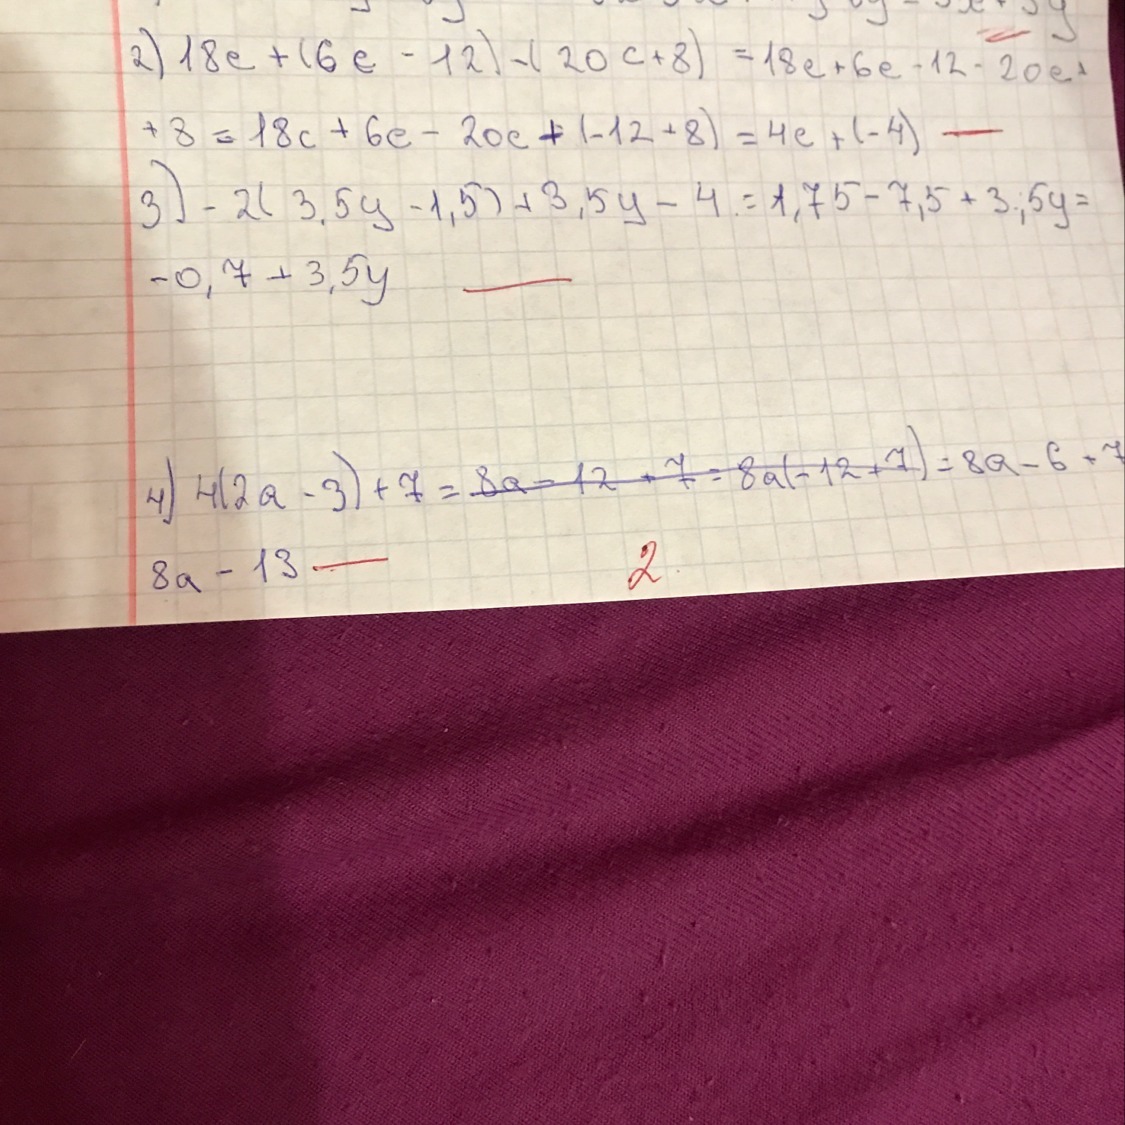 2) 18c + (6c - 12) - (20c + 8) = 18c + 6c - 12 - 20c +
+ 8 = 18c + 6c - 20c + (-12 + 8) = 4c + (-4)
3) - 2( 3,5y - 1,5) + 3,5y - 4 = 1,75 - 7,5 + 3,5y =
-0,7 + 3,5y
4) 4(2a - 3) + 7 = 8a - 12 + 7 = 8a(-12 + 7) = 8a - 6 + 7
8a - 13
2